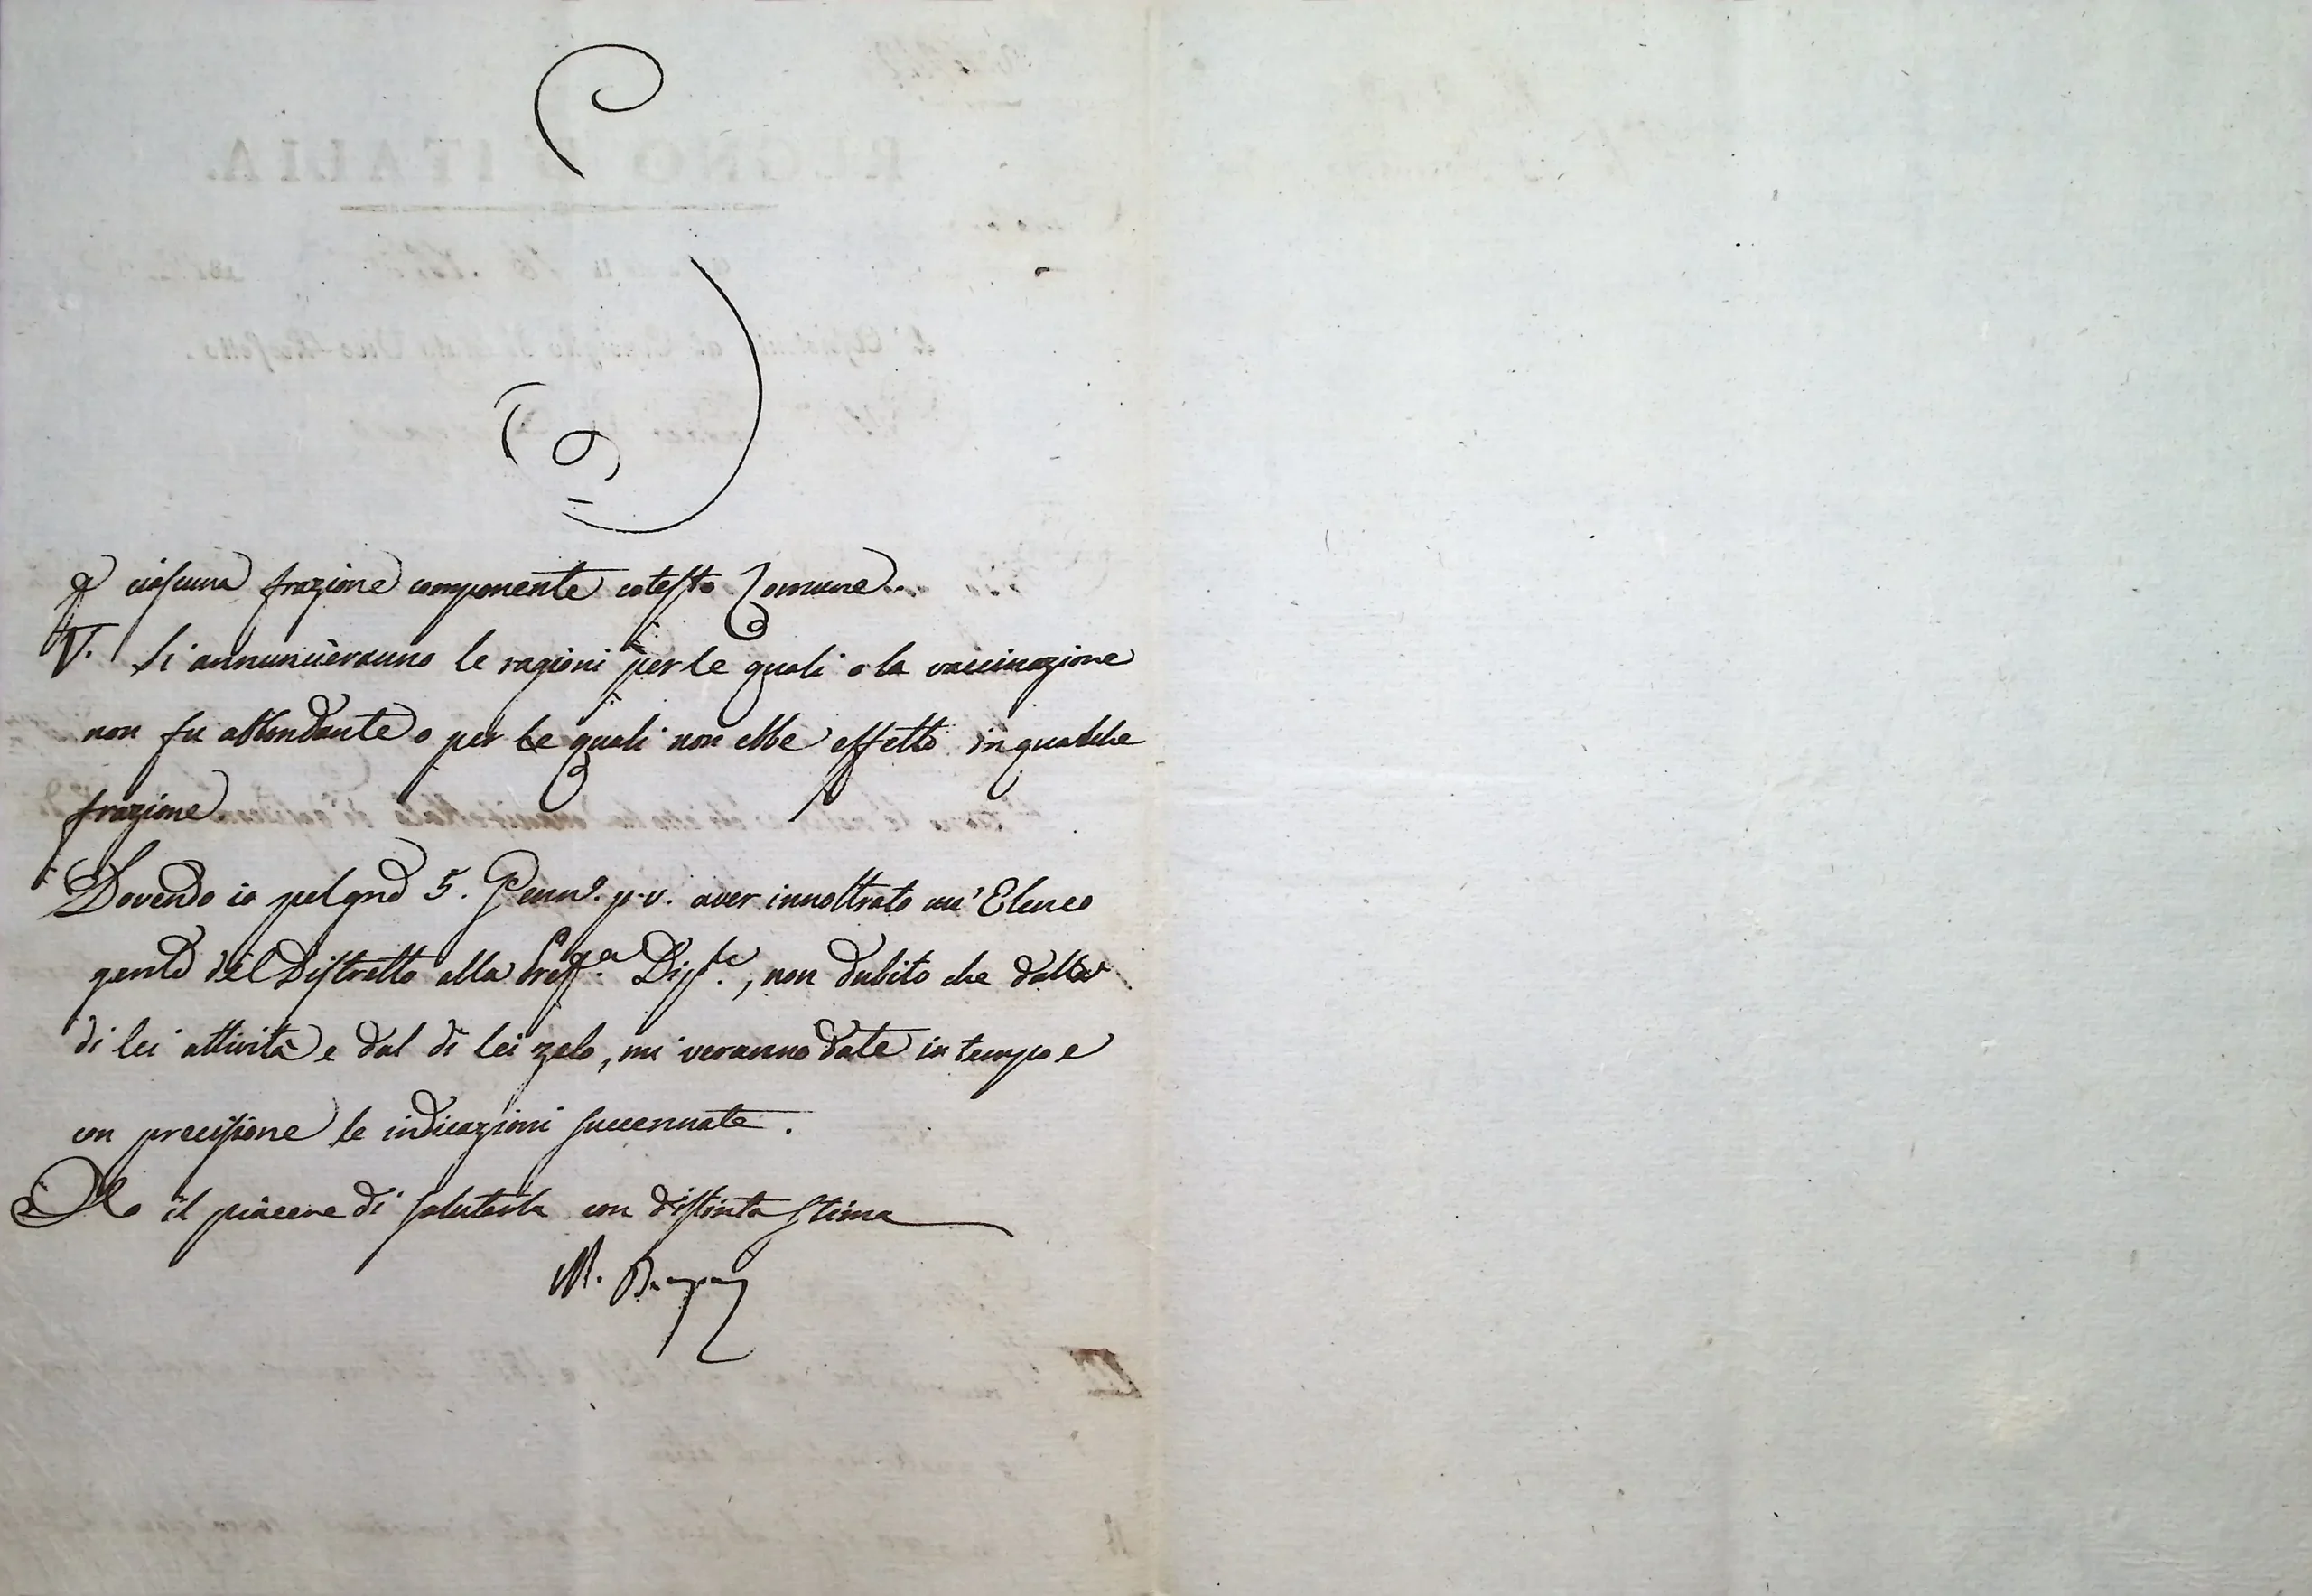 ciascuna frazione componente cotesto Comune.
V. Si annuncieranno le ragioni per le quali o la vaccinazione
non fu abbondante o per le quali non ebbe effetto in qualche
frazione.
Dovendo io pel gno 5. Genn.o p.v. aver innoltrato un' Elenco
genle del Distretto alla Pref.a Dip.le, non dubito che dalla
di lei attività e dal di lei zelo, mi veranno date in tempo e
con precisione le indicazioni succennate.
Ho il piacere di salutarla con distinta stima
M.